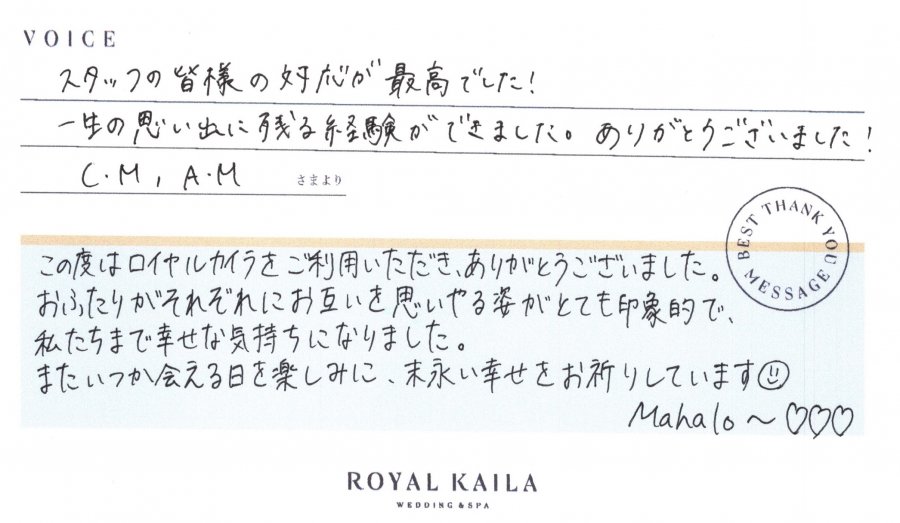 VOICE
スタッフの皆様の対応が最高でした!
一生の思い出に残る経験ができました。ありがとうございました!
C・M, A・M さまより
BEST THANK YOU MESSAGE
この度はロイヤルカイラをご利用いただき、ありがとうございました。
おふたりがそれぞれにお互いを思いやる姿がとても印象的で、
私たちまで幸せな気持ちになりました。
またいつか会える日を楽しみに、末永い幸せをお祈りしています☺
Mahalo~♡♡♡
ROYAL KAILA
WEDDING & SPA